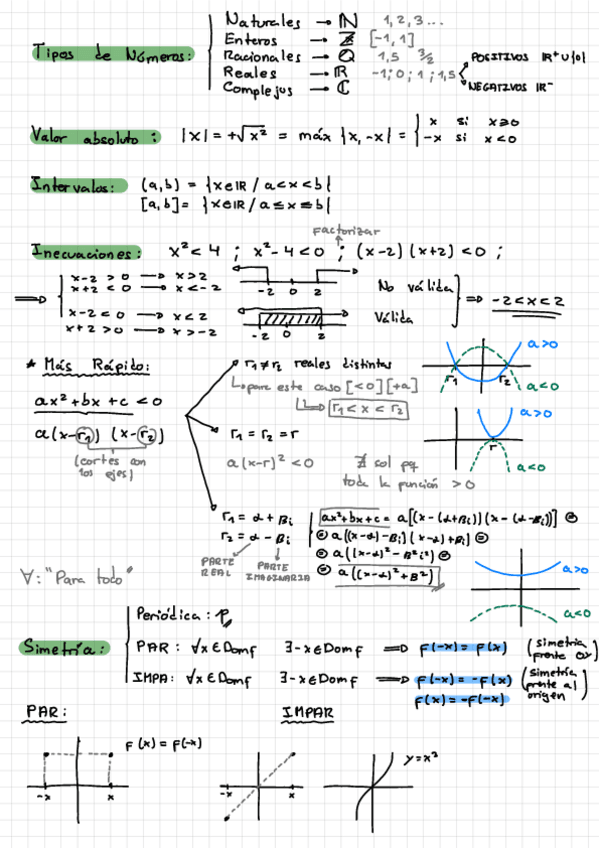 Tipos de Números:
Naturales → ℕ 1, 2, 3 ...
Enteros → ℤ [-1, 1]
Racionales → Q 1,5 3/2
Reales → ℝ -1; 0; 1; 1,5
POSITIVOS IR⁺ ∪ {0}
NEGATIVOS IR⁻
Complejos → ℂ
Valor absoluto: |x| = +√x² = máx {x, -x} = { x si x≥0
-x si x<0
Intervalos: (a, b) = {x∈IR / a<x<b}
[a, b] = {x∈IR / a≤x≤b}
Factorizar
Inecuaciones: x²<4 ; x²-4<0 ; (x-2)(x+2)<0 ;
⇒ x-2 > 0 → x>2
x+2 < 0 → x<-2
-2 0 2 No válida
x-2 < 0 → x<2
x+2 > 0 → x>-2
-2 0 2 Válida
⇒ -2<x<2
* Más Rápido:
ax²+bx+c<0
a(x-r₁) (x-r₂)
(cortes con
los ejes)
r₁≠r₂ reales distintas
↳ para este caso [<0][+a]
↳ r₁<x<r₂
r₁ r₂ a>0
a<0
r₁ = r₂ = r
a(x-r)²<0 ∄ sol pq
toda la función > 0
a>0
r
a<0
r₁ = α + βi
r₂ = α - βi
PARTE REAL
PARTE IMAGINARIA
ax²+bx+c = a[(x-(α+βi))(x-(α-βi))] =
= a((x-α)-βi)(x-α)+βi) =
= a((x-α)²-β²i²) =
= a((x-α)²+β²)
a>0
a<0
∀: "Para todo"
Simetría:
Periódica: p
PAR: ∀x∈Domf ∃-x∈Domf ⇒ f(-x)=f(x) (simetría frente OY)
IMPA: ∀x∈Domf ∃-x∈Domf ⇒ f(-x)=-f(x) (Simetría frente al origen)
f(x)=-f(-x)
PAR: IMPAR
F(x)=F(-x)
-x x
-x x
y=x³